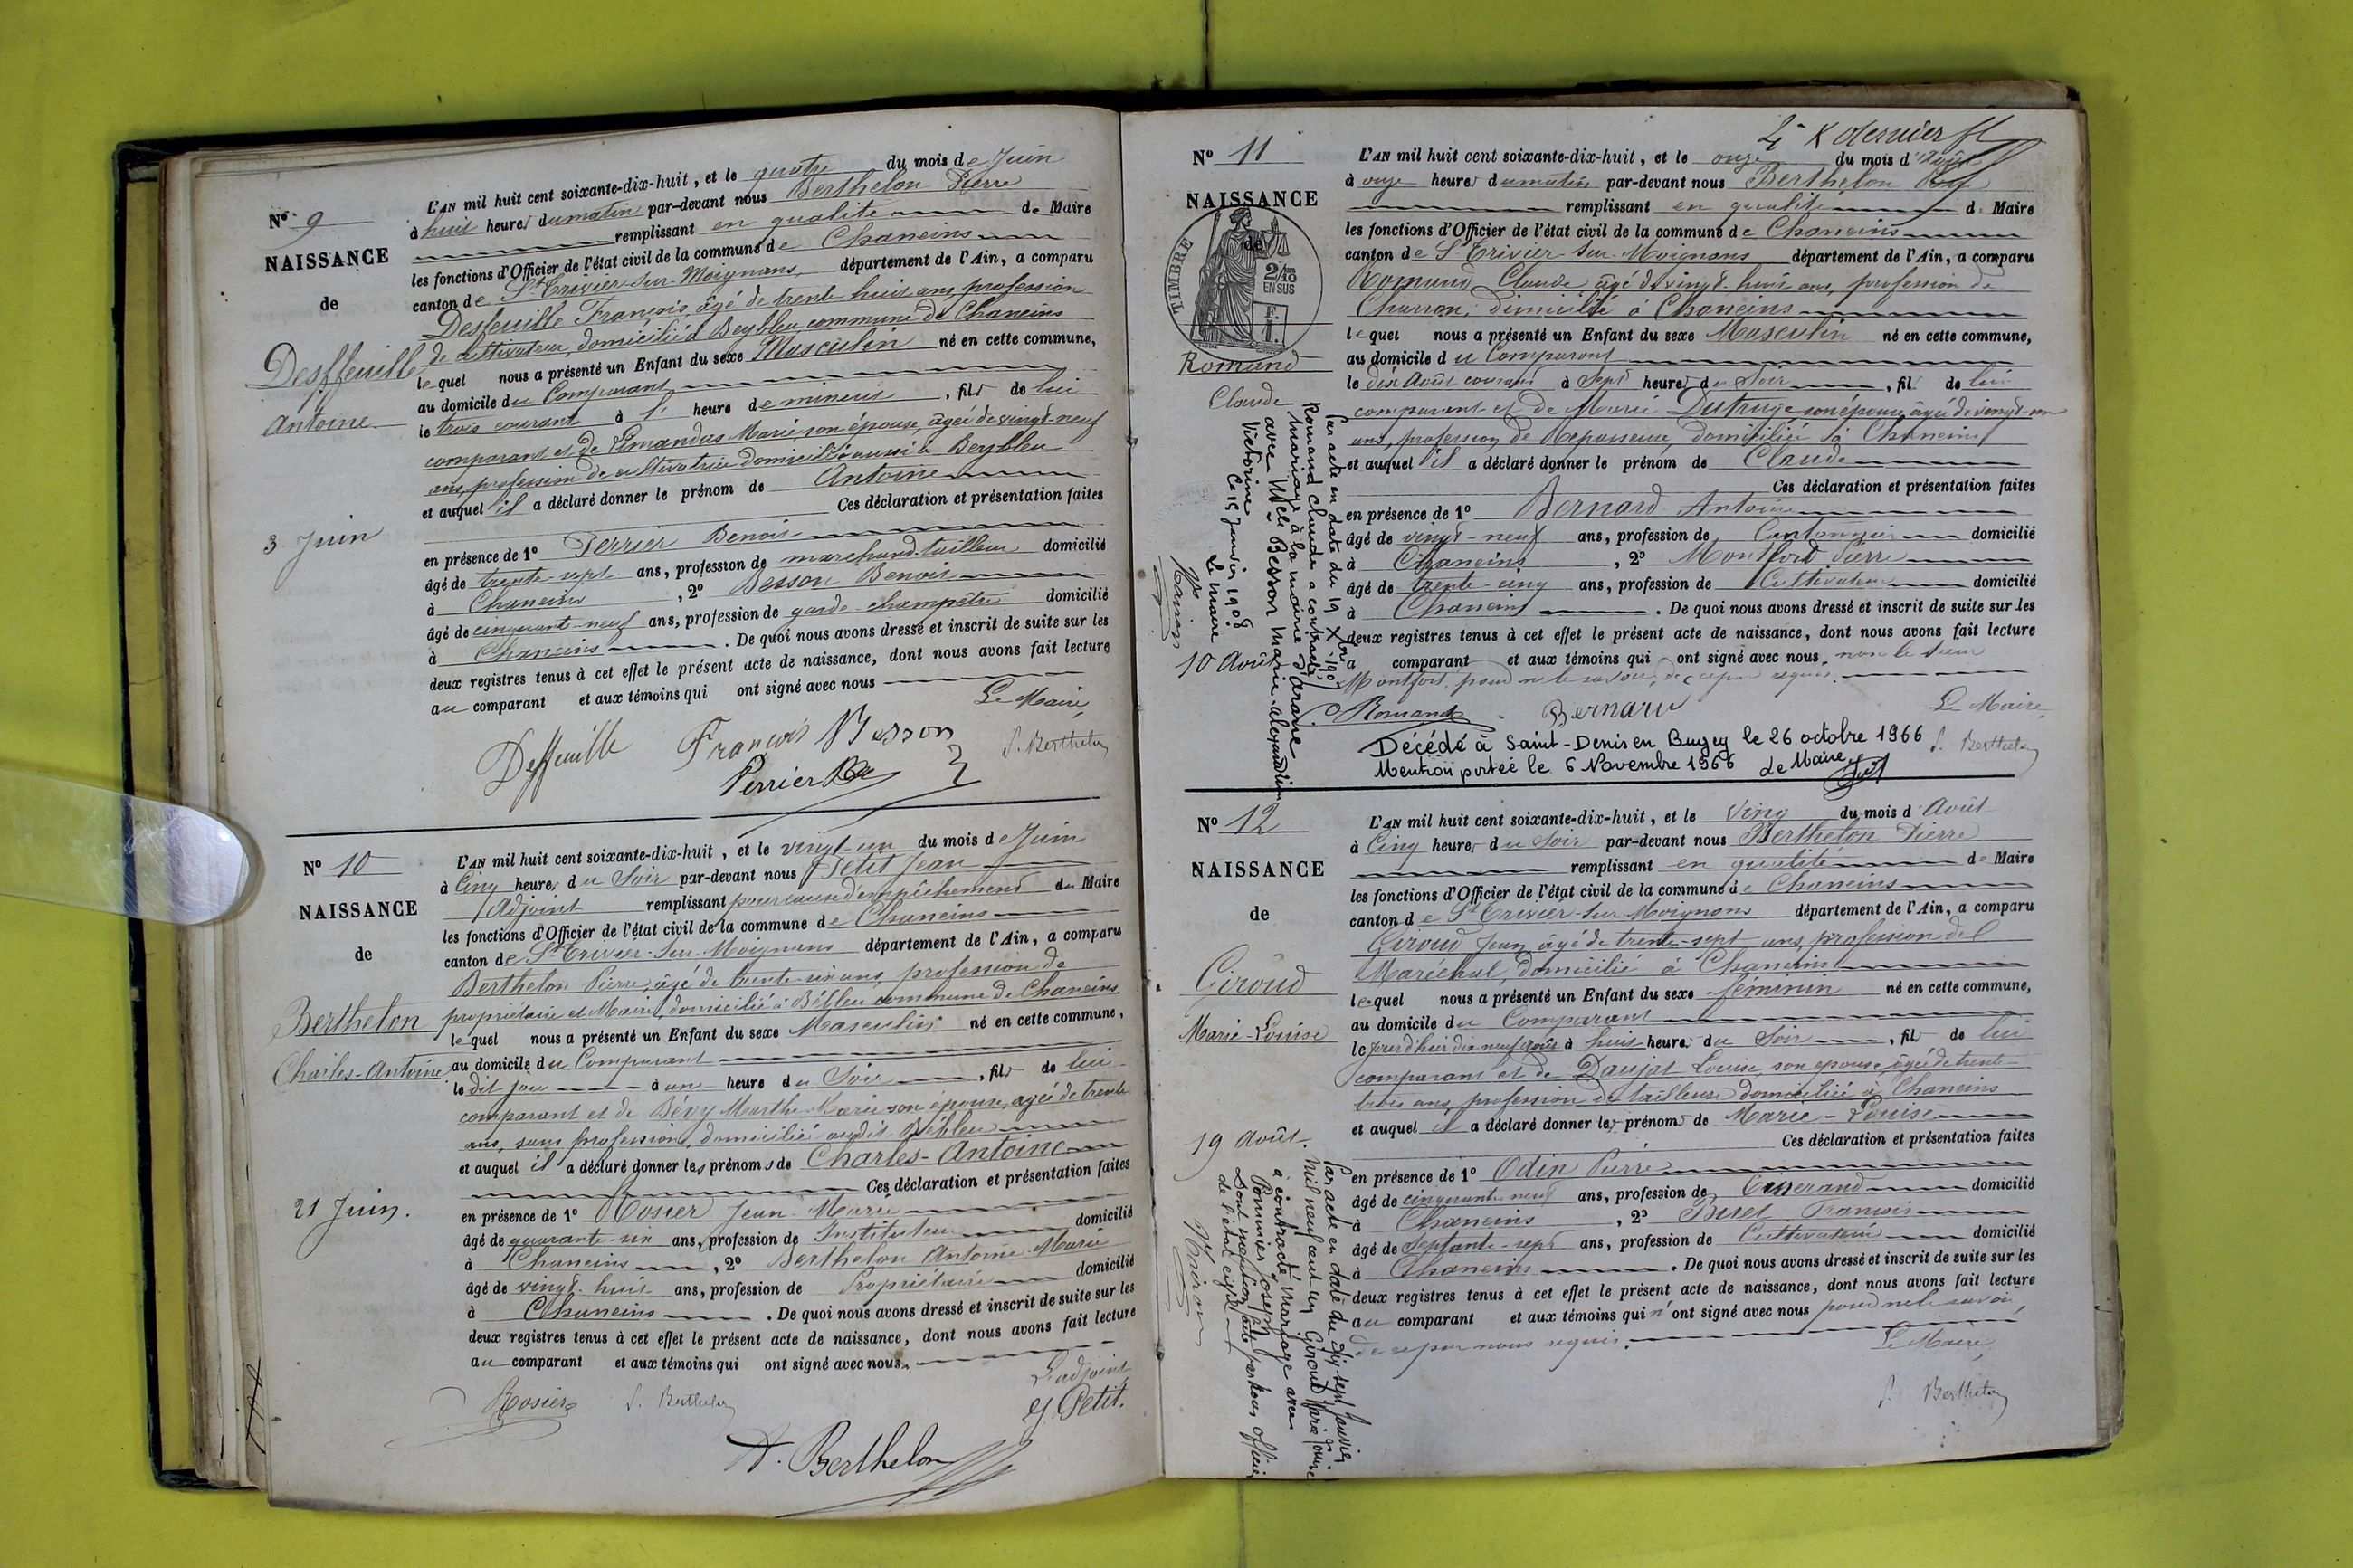 Nº 9
NAISSANCE
de
Desffeuille
Antoine
3 Juin
L'AN mil huit cent soixante-dix-huit, et le quatre du mois de Juin
à huit heures du matin par-devant nous Berthelon Pierre
remplissant en qualité de Maire
les fonctions d'Officier de l'état civil de la commune de Chaneins
canton de St Trivier-sur-Moignans département de l'Ain, a comparu
Desfeuille François, âgé de trente huit ans, profession
de cultivateur, domicilié à Beybleu commune de Chaneins
lequel nous a présenté un Enfant du sexe Masculin né en cette commune,
au domicile du Comparant
le trois courant à heure de minuit, fils de lui
comparant et de Limandas Marie son épouse, âgée de vingt-neuf
ans, profession de cultivatrice domiciliée aussi à Beybleu
et auquel il a déclaré donner le prénom de Antoine
Ces déclaration et présentation faites
en présence de 1º Perrier Benoit
âgé de trente-sept ans, profession de marchand-tailleur domicilié
à Chaneins, 2º Besson Benoit
âgé de cinquante-neuf ans, profession de garde-champêtre domicilié
à Chaneins. De quoi nous avons dressé et inscrit de suite sur les
deux registres tenus à cet effet le présent acte de naissance, dont nous avons fait lecture
au comparant et aux témoins qui ont signé avec nous
Le Maire,
Deffeuille François Besson P. Berthelon
Perrier
Nº 10
NAISSANCE
de
Berthelon
Charles-Antoine
21 Juin.
L'AN mil huit cent soixante-dix-huit, et le vingt-un du mois de Juin
à Cinq heures du Soir par-devant nous Petit Jean
Adjoint remplissant pour cause d'empêchement du Maire
les fonctions d'Officier de l'état civil de la commune de Chaneins
canton de St Trivier-sur-Moignans département de l'Ain, a comparu
Berthelon Pierre, âgé de trente-six ans, profession de
propriétaire et Maire, domicilié à Bébleu commune de Chaneins
lequel nous a présenté un Enfant du sexe Masculin né en cette commune,
au domicile du Comparant
le dit jour à une heure du Soir, fils de lui
comparant et de Bévy Marthe-Marie son épouse, agée de trente
ans, sans profession, domiciliée audit Bébleu
et auquel il a déclaré donner les prénoms de Charles-Antoine
Ces déclaration et présentation faites
en présence de 1º Rosier Jean-Marie
âgé de quarante-six ans, profession de Instituteur domicilié
à Chaneins, 2º Berthelon Antoine-Marie
âgé de vingt-huit ans, profession de Propriétaire domicilié
à Chaneins. De quoi nous avons dressé et inscrit de suite sur les
deux registres tenus à cet effet le présent acte de naissance, dont nous avons fait lecture
au comparant et aux témoins qui ont signé avec nous.
L'adjoint
Rosier P. Berthelon J. Petit.
A. Berthelon
dernier
Nº 11
NAISSANCE
de
TIMBRE
2/10
EN SUS
Romand
Claude
10 Août
Par acte en date du 19 Xbre 1907
Romand Claude a contracté
mariage à la mairie d'Arane
avec Melle Besson Marie-Alexandrine
Victorine
Ce 15 Janvier 1908
Le Maire
L'AN mil huit cent soixante-dix-huit, et le onze du mois d'Août
à onze heures du matin par-devant nous Berthelon
remplissant en qualité de Maire
les fonctions d'Officier de l'état civil de la commune de Chaneins
canton de St Trivier-sur-Moignans département de l'Ain, a comparu
Romand Claude âgé de vingt-huit ans, profession de
Charron, domicilié à Chaneins
lequel nous a présenté un Enfant du sexe Masculin né en cette commune,
au domicile du Comparant
le dix Août courant à sept heures du Soir, fil de lui
comparant et de Marie Dutruge son épouse âgée de vingt-un
ans, profession de Repasseuse, domiciliée à Chaneins
et auquel il a déclaré donner le prénom de Claude
Ces déclaration et présentation faites
en présence de 1º Bernard Antoine
âgé de vingt-neuf ans, profession de Cantonnier domicilié
à Chaneins, 2º Montfort Pierre
âgé de trente-cinq ans, profession de Cultivateur domicilié
à Chaneins. De quoi nous avons dressé et inscrit de suite sur les
deux registres tenus à cet effet le présent acte de naissance, dont nous avons fait lecture
a comparant et aux témoins qui ont signé avec nous, non le sieur
Montfort, pour ne le savoir, de ce par requis.
Romand Bernard Le Maire,
P. Berthelon
Décédé à Saint-Denis en Bugey le 26 octobre 1966
Mention portée le 6 Novembre 1966 Le Maire,
Nº 12
NAISSANCE
de
Giroud
Marie-Louise
19 Août.
Par acte en date du dix-sept Janvier
mil neuf cent un Giroud Marie Louise
a contracté mariage avec
Pommier Joseph
Dont mention faite par nous officier
de l'état civil
L'AN mil huit cent soixante-dix-huit, et le vingt du mois d'Août
à Cinq heures du Soir par-devant nous Berthelon Pierre
remplissant en qualité de Maire
les fonctions d'Officier de l'état civil de la commune de Chaneins
canton de St Trivier-sur-Moignans département de l'Ain, a comparu
Giroud Jean, âgé de trente-sept ans, profession de
Maréchal, domicilié à Chaneins
lequel nous a présenté un Enfant du sexe féminin né en cette commune,
au domicile du Comparant
le jour d'hier dix neuf août à huit heures du Soir, fil de lui
comparant et de Daujat Louise, son épouse, âgée de trente-
trois ans, profession de tailleuse domiciliée à Chaneins
et auquel il a déclaré donner les prénoms de Marie-Louise
Ces déclaration et présentation faites
en présence de 1º Odin Pierre
âgé de cinquante neuf ans, profession de Tisserand domicilié
à Chaneins, 2º François
âgé de Septante-sept ans, profession de Cultivateur domicilié
à Chaneins. De quoi nous avons dressé et inscrit de suite sur les
deux registres tenus à cet effet le présent acte de naissance, dont nous avons fait lecture
au comparant et aux témoins qui n'ont signé avec nous pour ne le savoir,
de ce par nous requis.
Le Maire,
P. Berthelon